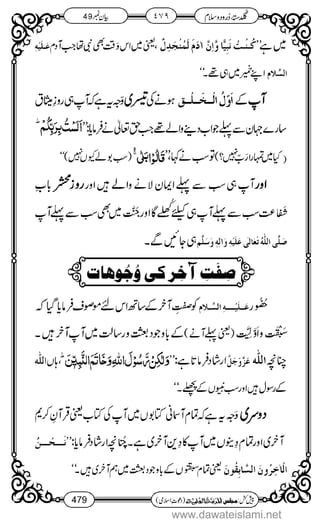 گلدستۂ دُرود و سلام
۴۷۹
بیان نمبر 49
میں ہے ’’کُنْتُ نَبِیًّا وَّاِنَّ اٰدَمَ لَمُنْجَدِلٌ، یعنی میں اس وقت بھی نبی تھا جب آدم عَلَیْہِ
السَّلَام اپنے خمیر میں تھے۔‘‘
آپ کے اَوَّلُ الْـخَـلْـق ہونے کی تیسری وجہ یہ ہے کہ آپ ہی روزِ میثاق
سارے جہان سے پہلے جواب دینے والے تھے جب حق تعالٰی نے فرمایا: ’’اَلَسْتُ بِرَبِّكُمْ ؕ
(کیا میں تمہارا رب نہیں؟) تو سب نے کہا، ’’قَالُوْا بَلٰى ۚۛ (سب بولے کیوں نہیں)‘‘
اور آپ ہی سب سے پہلے ایمان لانے والے ہیں اور روزِ محشر بابِ
شَفاعت سب سے پہلے آپ ہی کیلئے کھلے گا اور جنَّت میں بھی سب سے پہلے آپ
صَلَّی اللّٰہُ تَعَالٰی عَلَیْہِ وَاٰلِہٖ وَسَلَّم ہی جائیں گے۔
صِفَتِ آخر کی وُجُوہات
حُضُور عَـلَـیْـہِ السَّلَام کو صفتِ آخر کے ساتھ اس لئے موصوف فرمایا گیا کہ
سَبْقَت و اَوَّلِیَّت (یعنی پہلے آنے) کے باوجود بعثت و رسالت میں آپ آخر ہیں۔
چنانچہ اللّٰہ عَزَّوَجَلَّ ارشاد فرماتا ہے: ’’وَلٰكِنْ رَّسُوْلَ اللّٰهِ وَخَاتَمَ النَّبِیّٖنَ ؕ، ہاں اللّٰہ
کے رسول ہیں اور سب نبیوں کے پچھلے۔‘‘
دوسری وجہ یہ ہے کہ تمام آسمانی کتابوں میں آپ کی کتاب یعنی قرآنِ کریم
آخری اور تمام دِینوں میں آپ کا دِین آخر ہے۔ چنانچہ ارشاد فرمایا: ’’نَـحْـنُ
الْاٰخِرُوْنَ السَّابِقُوْنَ یعنی تمام سبقتوں کے باوجود بعثت میں ہم آخری ہیں۔‘‘
479
پیش کش: مجلس المدینۃ العلمیۃ (دعوتِ اسلامی)
www.dawateislami.net